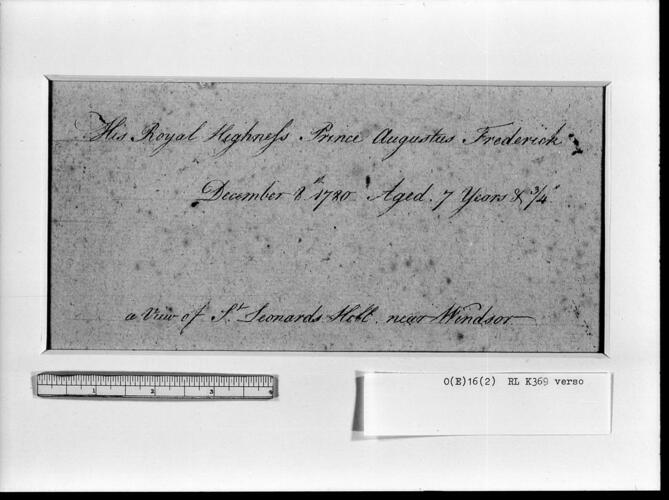 His Royal Highneſs Prince Augustus Frederick
December 8th 1780 Aged. 7 Years & 3/4
a View of St. Leonards Hill. near Windsor
1 2 3
O(E)16(2) RL K369 verso